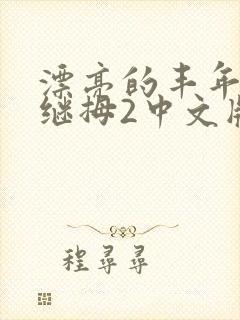 漂亮的丰年
继拇2中文版
程寻寻